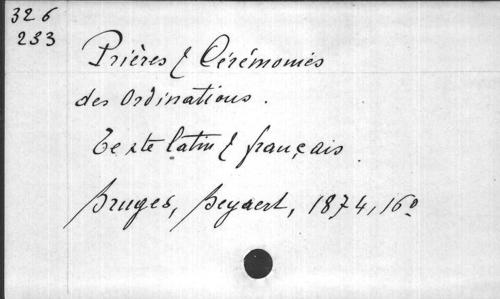 326
233
Prières & Cérémonies
des Ordinations.
Texte latin & français.
Bruges, Beyaert, 1874, 16º